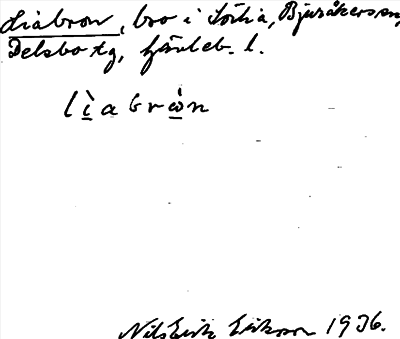 Liabron, bro i Lötia, Bjuråkers sn,
Delsbo tg, Gävleb. l.
lìabròn
Nils Erik Eriksson 1936.